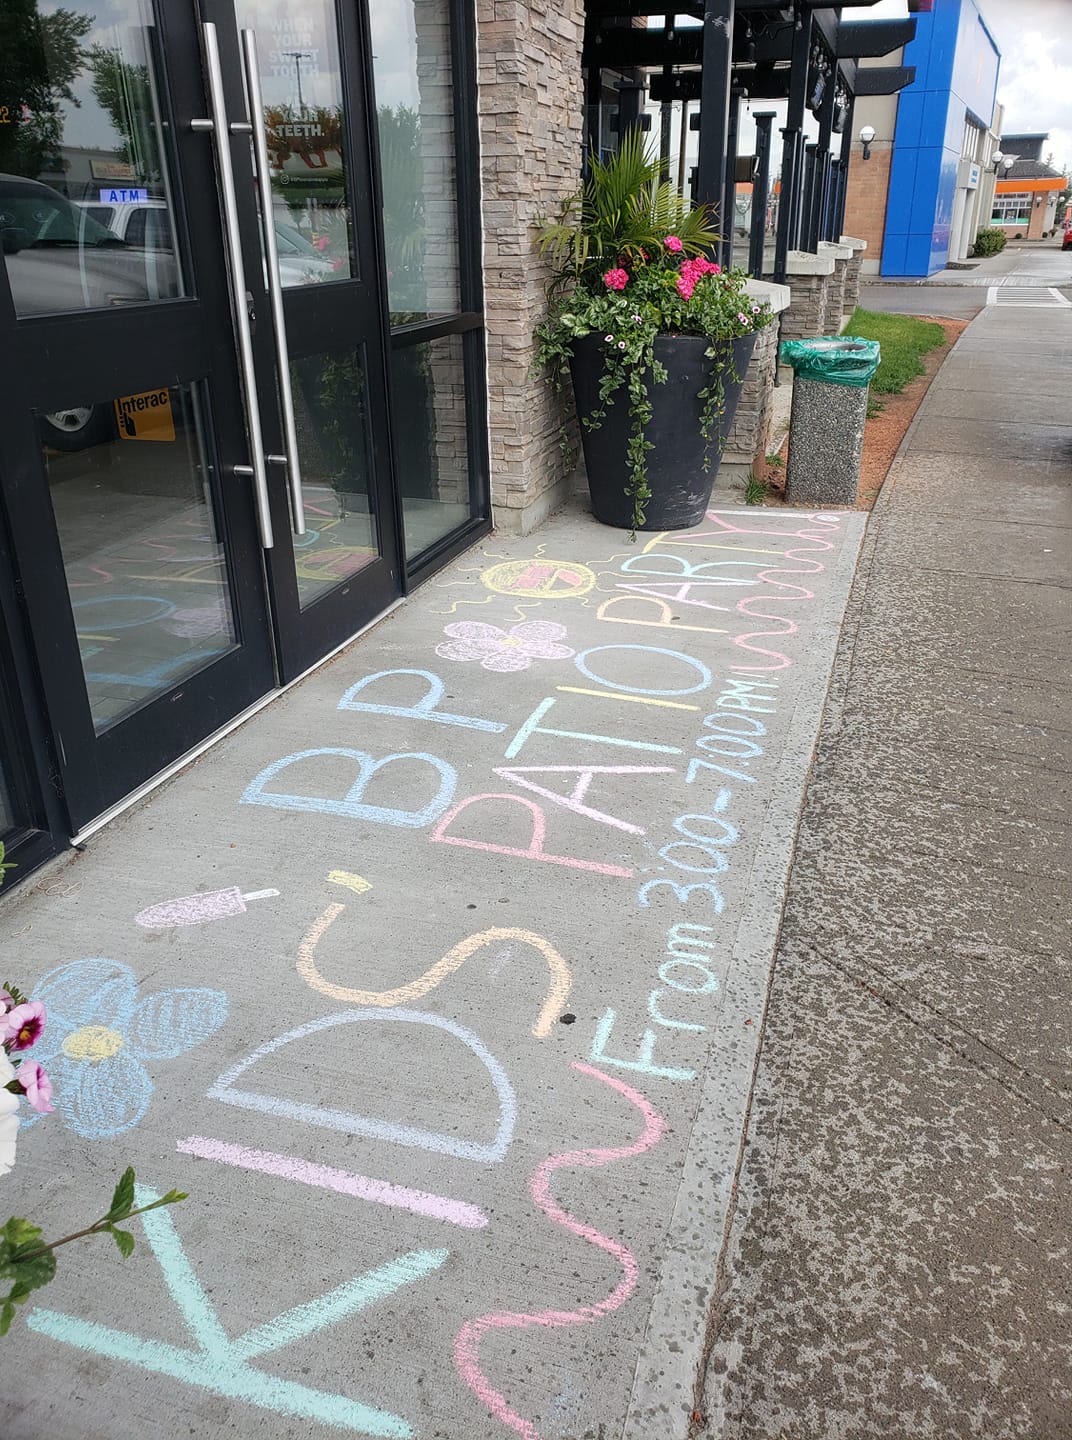 KIDS' BP
PATIO PARTY
From 3:00-7:00PM!
WHEN
YOUR
SWEET
TOOTH
YOUR
TEETH.
ATM
Interac
22